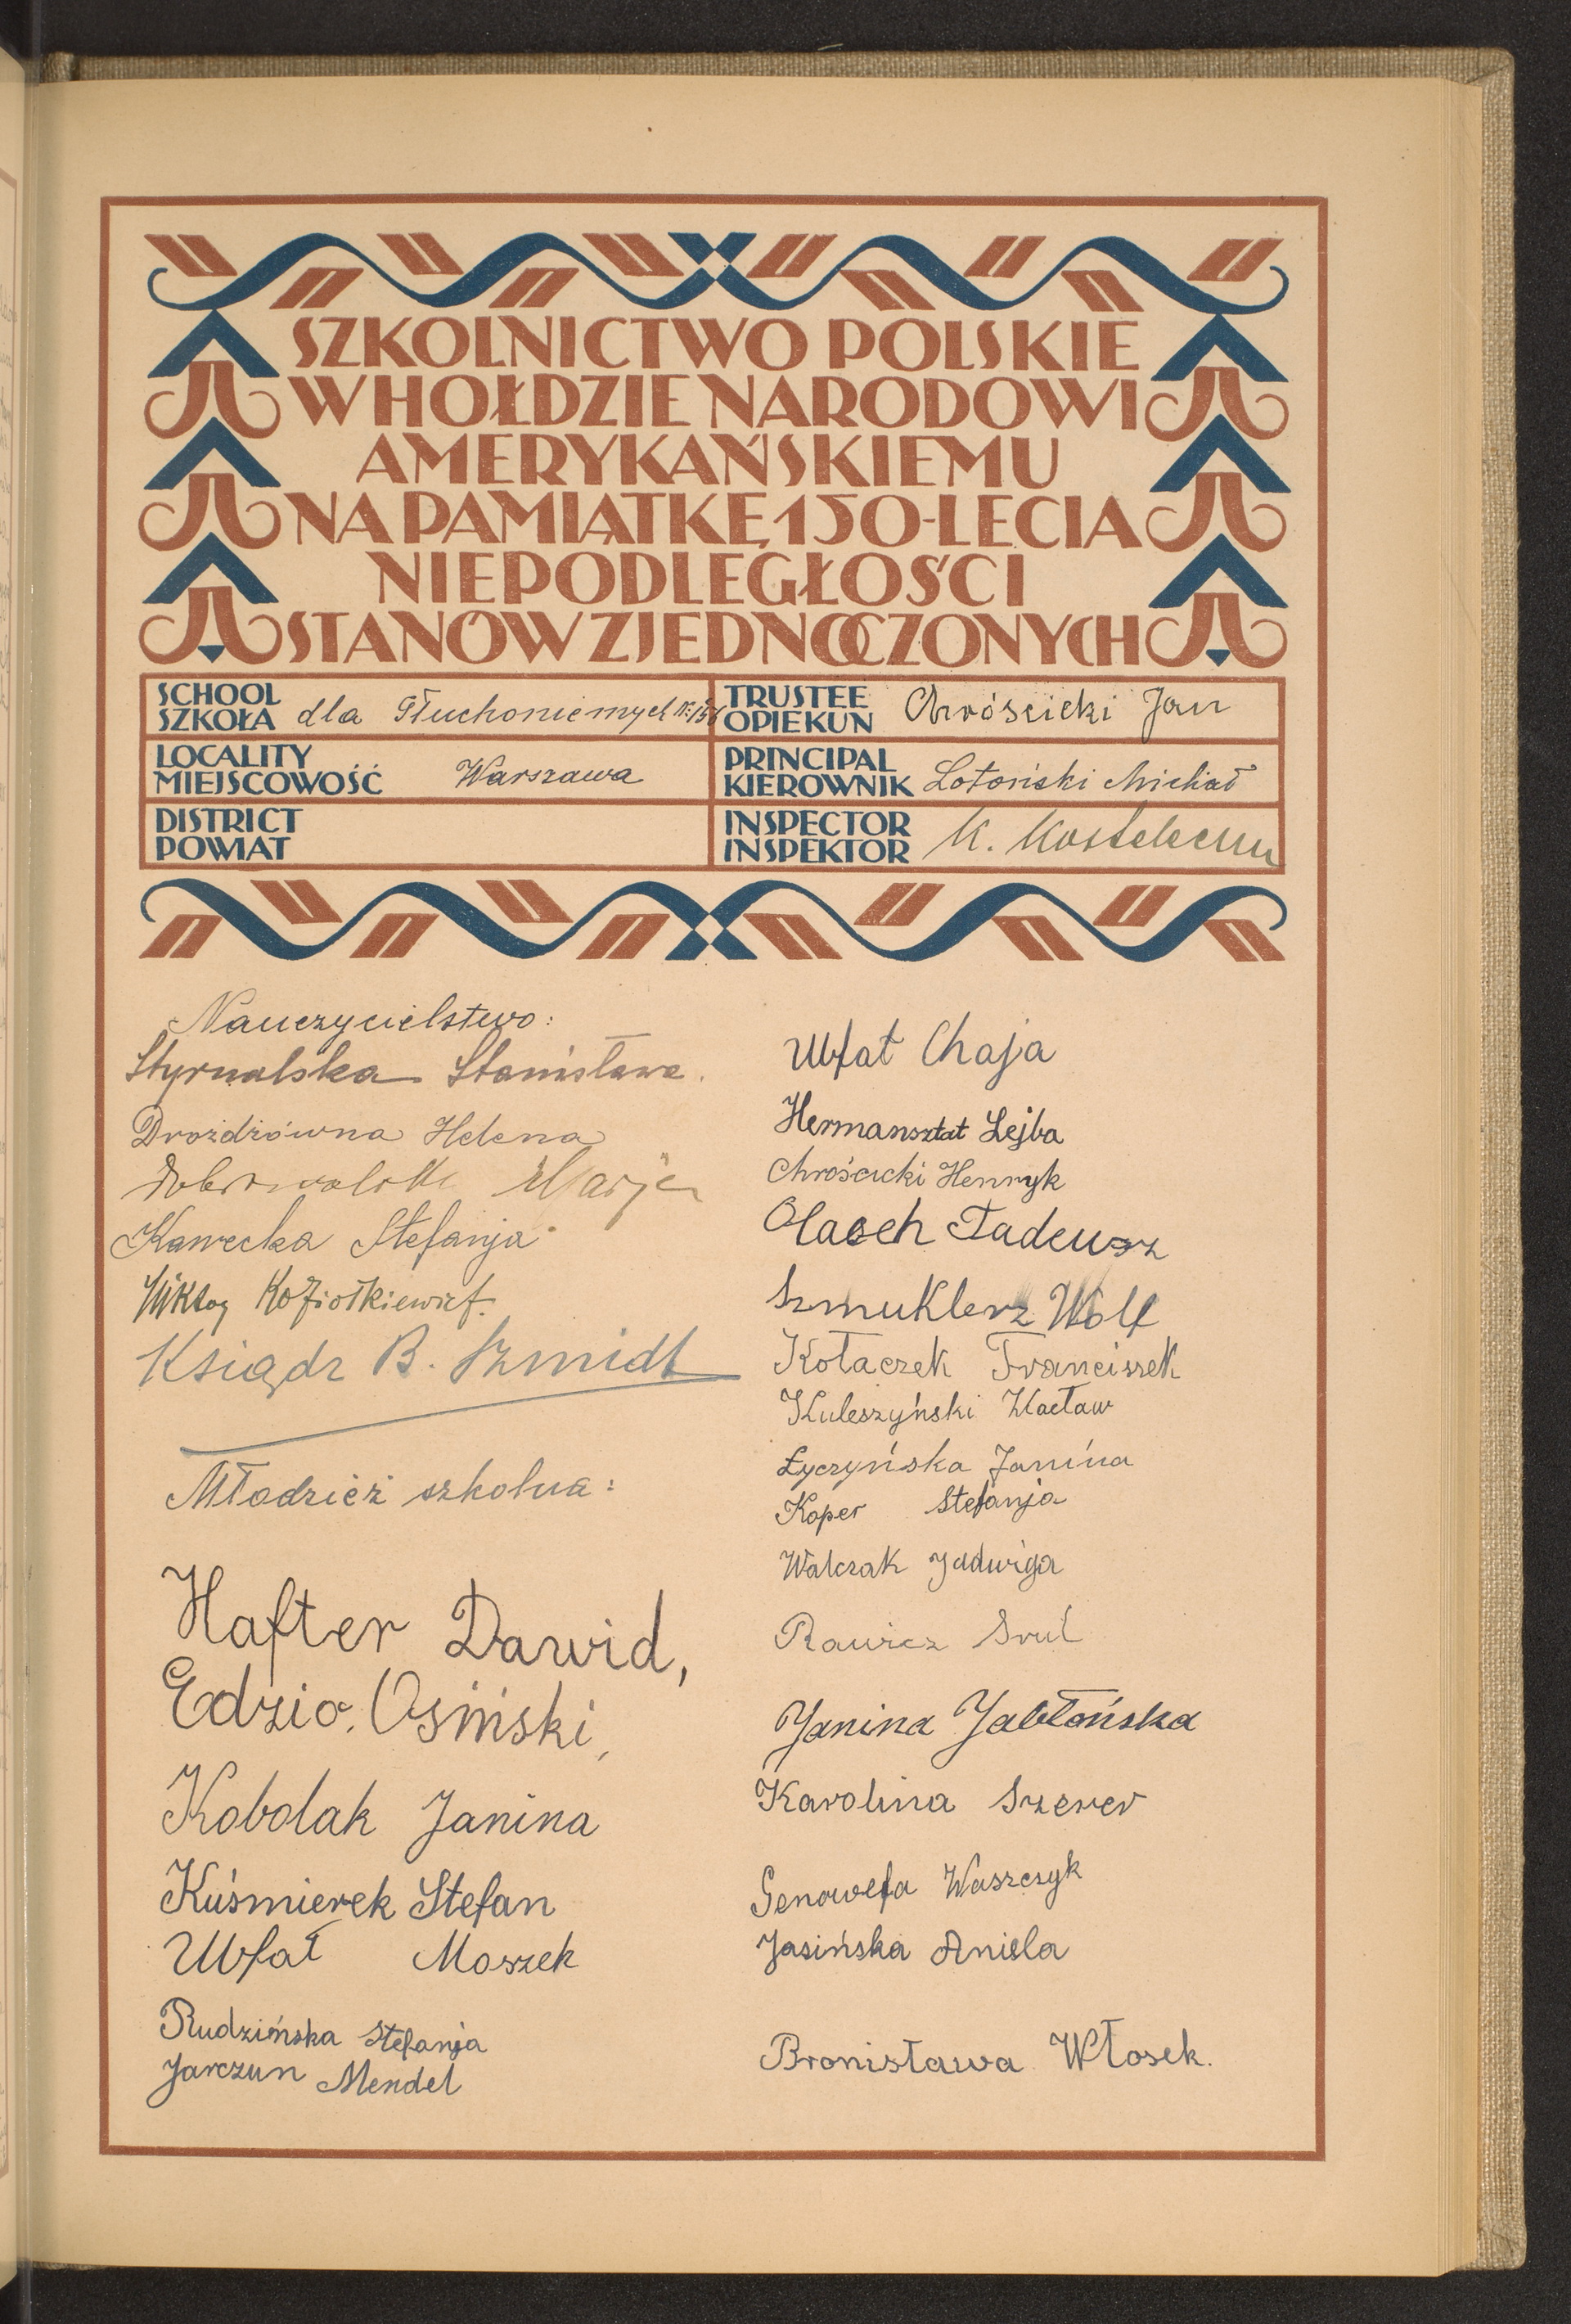 SZKOLNICTWO POLSKIE
W HOŁDZIE NARODOWI
AMERYKAŃSKIEMU
NA PAMIĄTKĘ 150-LECIA
NIEPODLEGŁOŚCI
STANÓW ZJEDNOCZONYCH
SCHOOL
SZKOŁA dla Głuchoniemych
TRUSTEE
OPIEKUN Chróścicki Jan
LOCALITY
MIEJSCOWOŚĆ Warszawa
PRINCIPAL
KIEROWNIK Łotoński Michał
DISTRICT
POWIAT
INSPECTOR
INSPEKTOR K.
Nauczycielstwo:
Styrnalska Stanisława.
Drożdżówna Helena
Dobrowolska Marja
Kawecka Stefanja
Wiktor Koziołkiewicz.
Ksiądz B. Szmidt
Młodzież szkolna:
Hafter Dawid,
Edzio. Osiński,
Kobolak Janina
Kuśmierek Stefan
Ubfał Moszek
Rudzińska Stefanja
Jarczun Mendel
Ubfat Chaja
Hermansztat Lejba
Chrościcki Henryk
Olasch Tadeusz
Szmuklerz Wolf
Kołaczek Franciszek
Kuleszyński Wacław
Łyczyńska Janina
Koper Stefanja
Walczak Jadwiga
Rawicz Srul
Janina Jabłońska
Karolina Szerer
Genowefa Waszczyk
Jasińska Aniela
Bronisława Włosek.